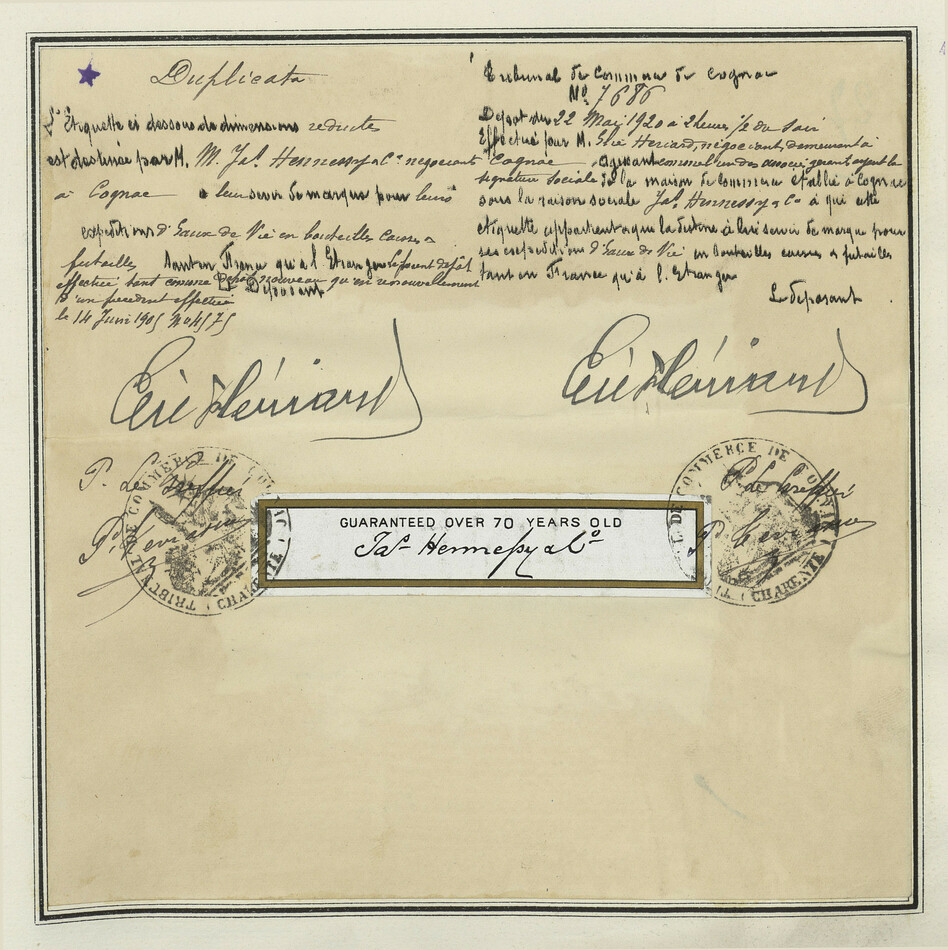 Duplicata
L'Étiquette ci dessous de dimensions reductes
est destinée par M. M. Jas. Hennessy & Co négociant
à Cognac à leur servir de marque pour leurs
expeditions d'Eaux de Vie en bouteilles caisses &
futailles tant en France qu'à l'Etranger le présent dépôt
effectué tant comme Dépôt nouveau qu'en renouvellement
d'un précédent effectué Le Déposant
le 14 Juin 1905 No 4575
Tribunal de Commerce de Cognac
No 7686
Dépôt du 22 Mai 1920 à 2 heures 1/2 du Soir
Effectué par M. Heriard, négociant, demeurant à
Cognac, agissant comme l'un des associés gérants ayant la
signature sociale de la maison de Commerce établie à Cognac
sous la raison sociale Jas Hennessy & Co à qui cette
étiquette appartient & qui la destine à lui servir de marque pour
ses expéditions d'Eaux de Vie en bouteilles caisses & futailles
tant en France qu'à l'Etranger
Le déposant
Heriard
Heriard
P. Le Greffier
P. Le Greffier
TRIBUNAL DE COMMERCE DE COGNAC (CHARENTE)
GUARANTEED OVER 70 YEARS OLD
Jas Hennessy & Co
TRIBUNAL DE COMMERCE DE COGNAC (CHARENTE)